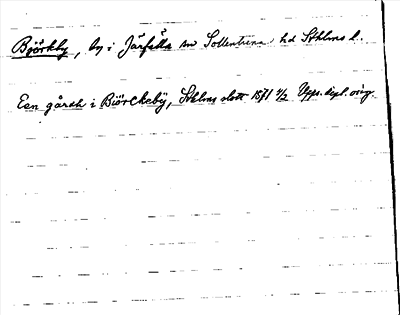 Björkby, by i Järfälla sn Sollentuna hd Sthlms l.
Een gårdh i Biörckeby, Sthlms slott 1571 1/2 Upps. dipl. orig.